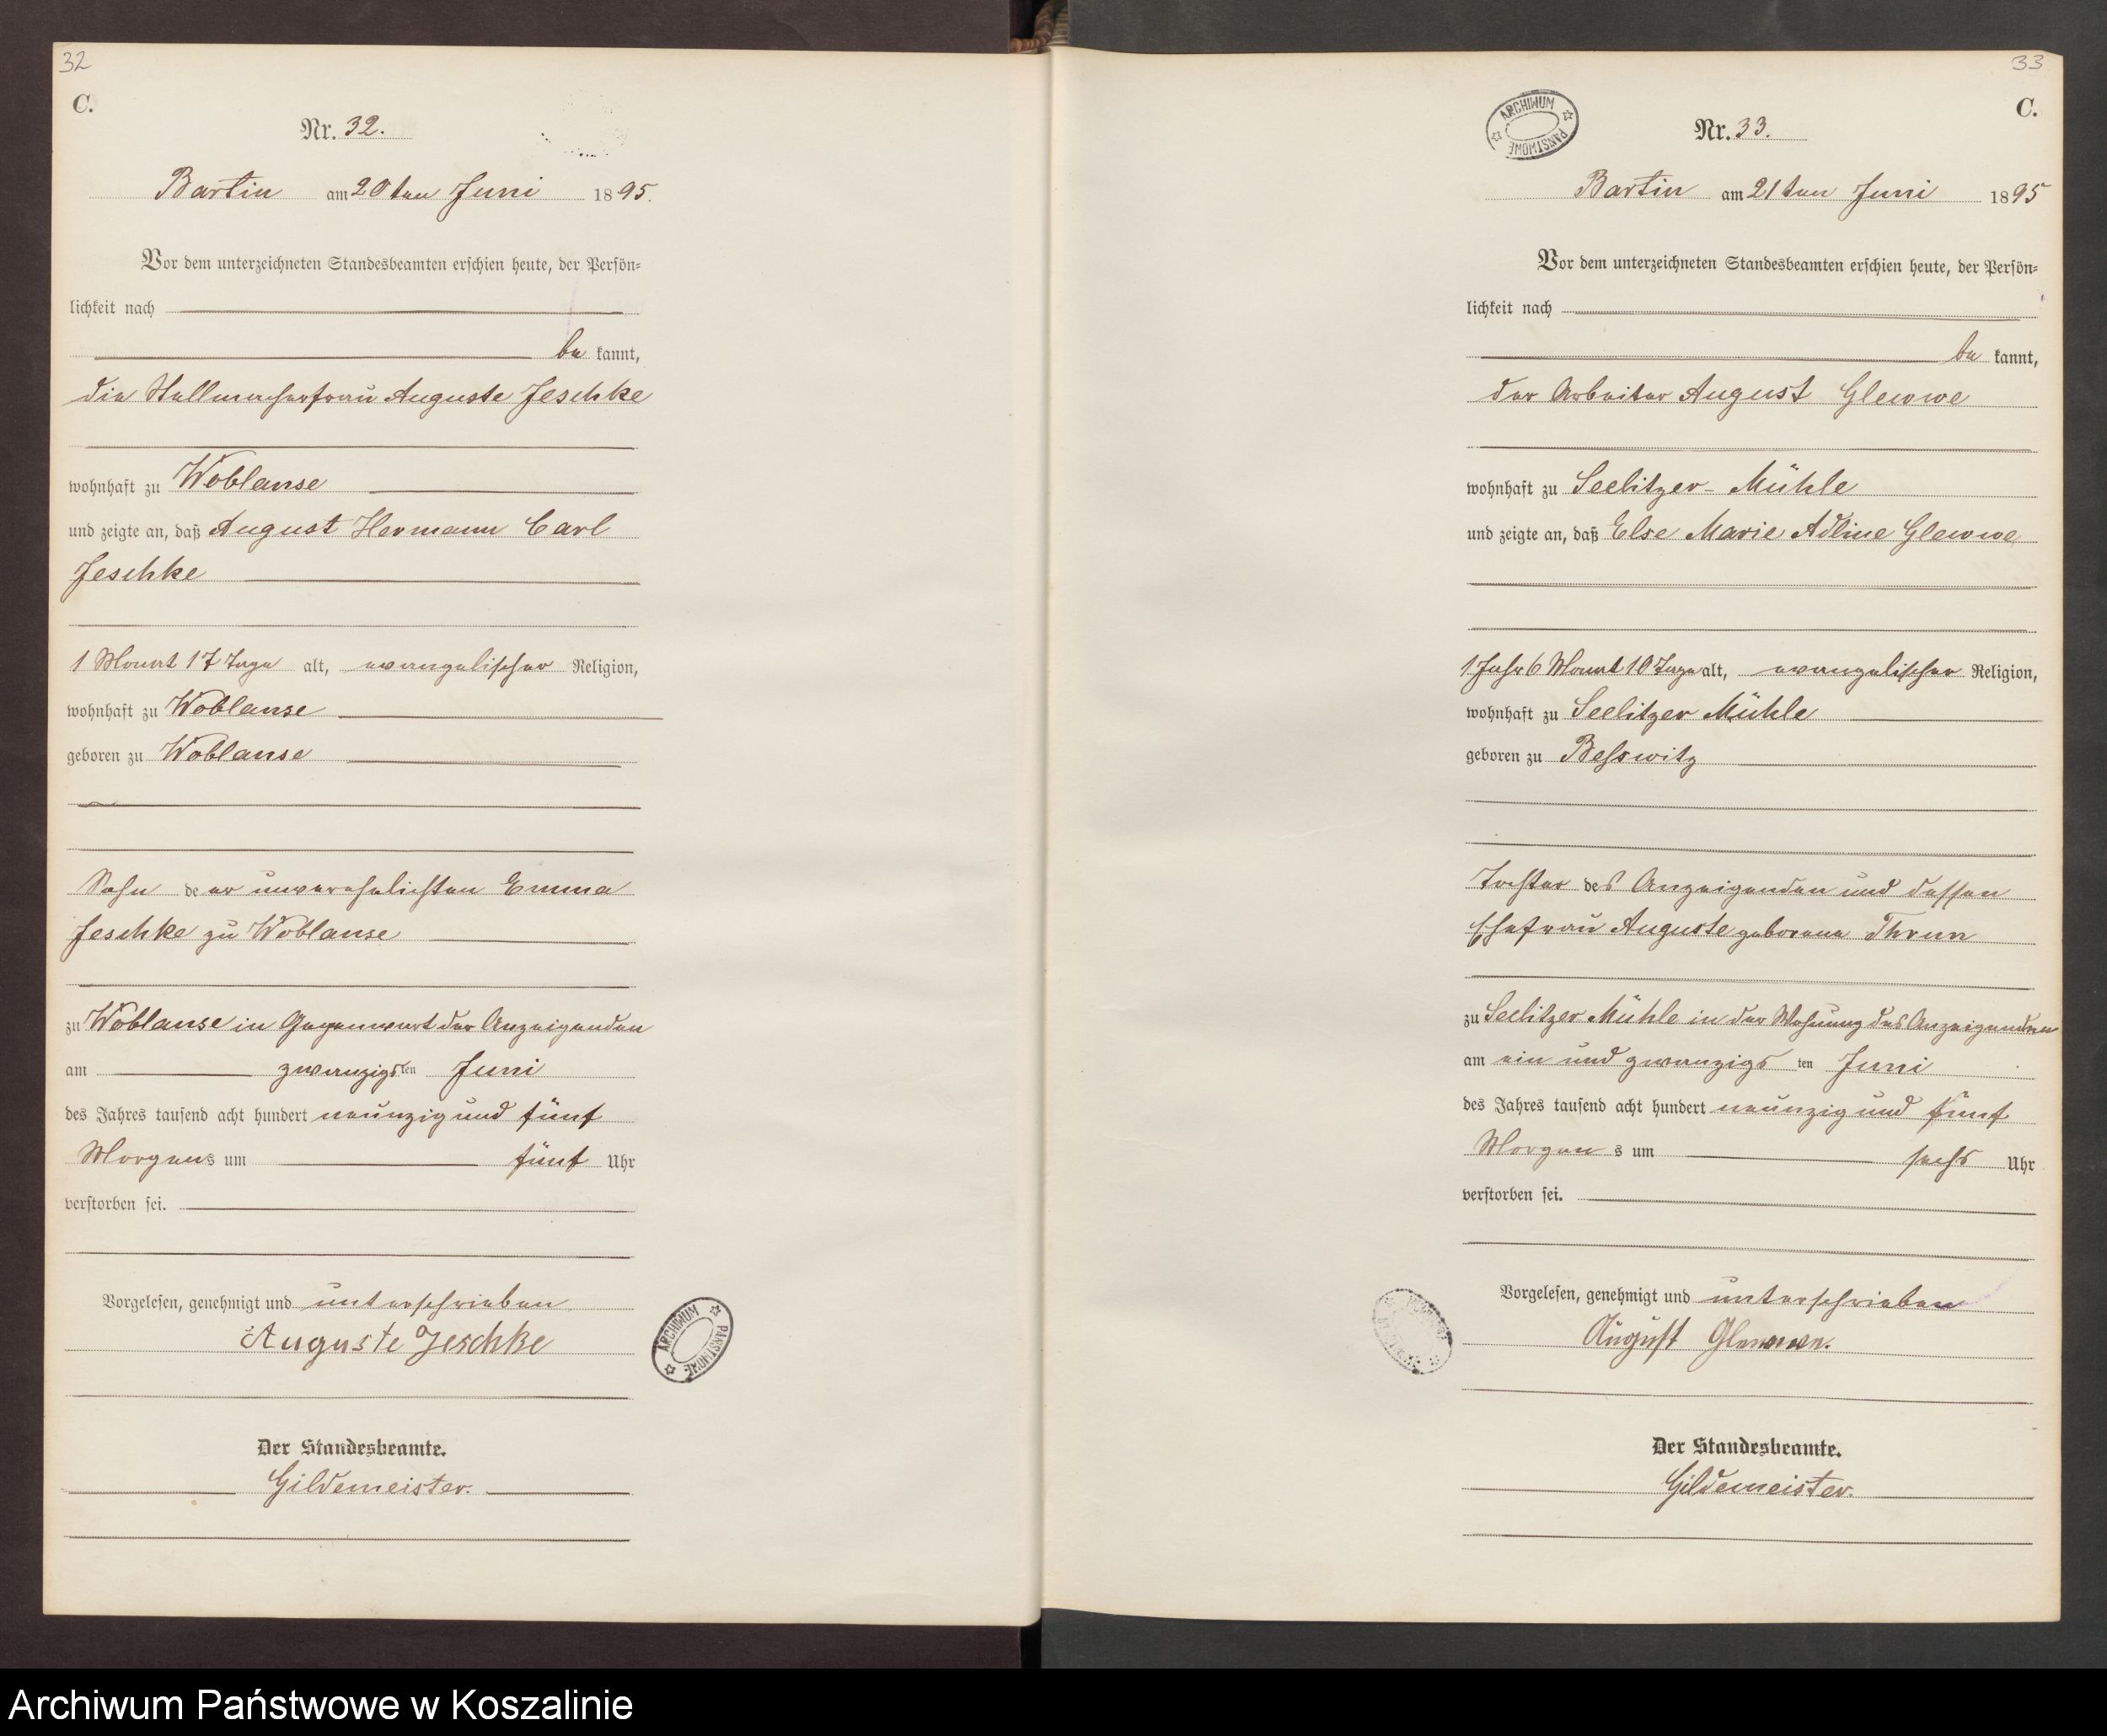 32
C.
Nr. 32.
Bartin am 20ten Juni 1895.
Vor dem unterzeichneten Standesbeamten erschien heute, der Persön-
lichkeit nach
be kannt,
die Stellmacherfrau Auguste Jeschke
wohnhaft zu Woblanse
und zeigte an, daß August Hermann Carl
Jeschke
1 Monat 17 Tage alt, evangelischer Religion,
wohnhaft zu Woblanse
geboren zu Woblanse
Sohn der unverehelichten Emma
Jeschke zu Woblanse
zu Woblanse in Gegenwart der Anzeigenden
am zwanzigsten Juni
des Jahres tausend acht hundert neunzig und fünf
Morgens um fünf Uhr
verstorben sei.
Vorgelesen, genehmigt und unterschrieben
Auguste Jeschke
ARCHIWUM PAŃSTWOWE
Der Standesbeamte.
Gildemeister.
33
C.
ARCHIWUM PAŃSTWOWE
Nr. 33.
Bartin am 21ten Juni 1895
Vor dem unterzeichneten Standesbeamten erschien heute, der Persön-
lichkeit nach
be kannt,
der Arbeiter August Glewwe
wohnhaft zu Seelitzer-Mühle
und zeigte an, daß Else Marie Adline Glewwe
1 Jahr 6 Monat 10 Tage alt, evangelischer Religion,
wohnhaft zu Seelitzer Mühle
geboren zu Besswitz
Tochter des Anzeigenden und dessen
Ehefrau Auguste geborene Thrun
zu Seelitzer Mühle in der Wohnung des Anzeigenden
am ein und zwanzigsten Juni
des Jahres tausend acht hundert neunzig und fünf
Morgens um sechs Uhr
verstorben sei.
Vorgelesen, genehmigt und unterschrieben
August Glewwe.
Der Standesbeamte.
Gildemeister.
Archiwum Państwowe w Koszalinie